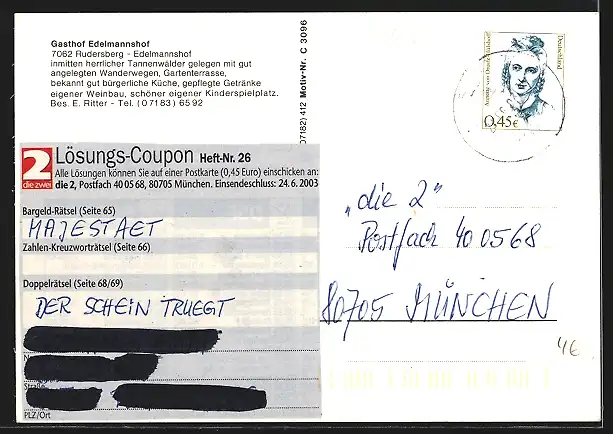 Gasthof Edelmannshof
7062 Rudersberg - Edelmannshof
inmitten herrlicher Tannenwälder gelegen mit gut
angelegten Wanderwegen, Gartenterrasse,
bekannt gut bürgerliche Küche, gepflegte Getränke
eigener Weinbau, schöner eigener Kinderspielplatz.
Bes. E. Ritter - Tel. (07183) 6592
(07182) 412 Motiv-Nr. C 3096
Deutschland
0,45€
2
die zwei
Lösungs-Coupon Heft-Nr. 26
Alle Lösungen können Sie auf einer Postkarte (0,45 Euro) einschicken an:
die 2, Postfach 40 05 68, 80705 München. Einsendeschluss: 24.6.2003
Bargeld-Rätsel (Seite 65)
MAJESTAET
Zahlen-Kreuzworträtsel (Seite 66)
Doppelrätsel (Seite 68/69)
DER SCHEIN TRUEGT
PLZ/Ort
„die 2"
Postfach 40 0568
80705 MÜNCHEN
4€